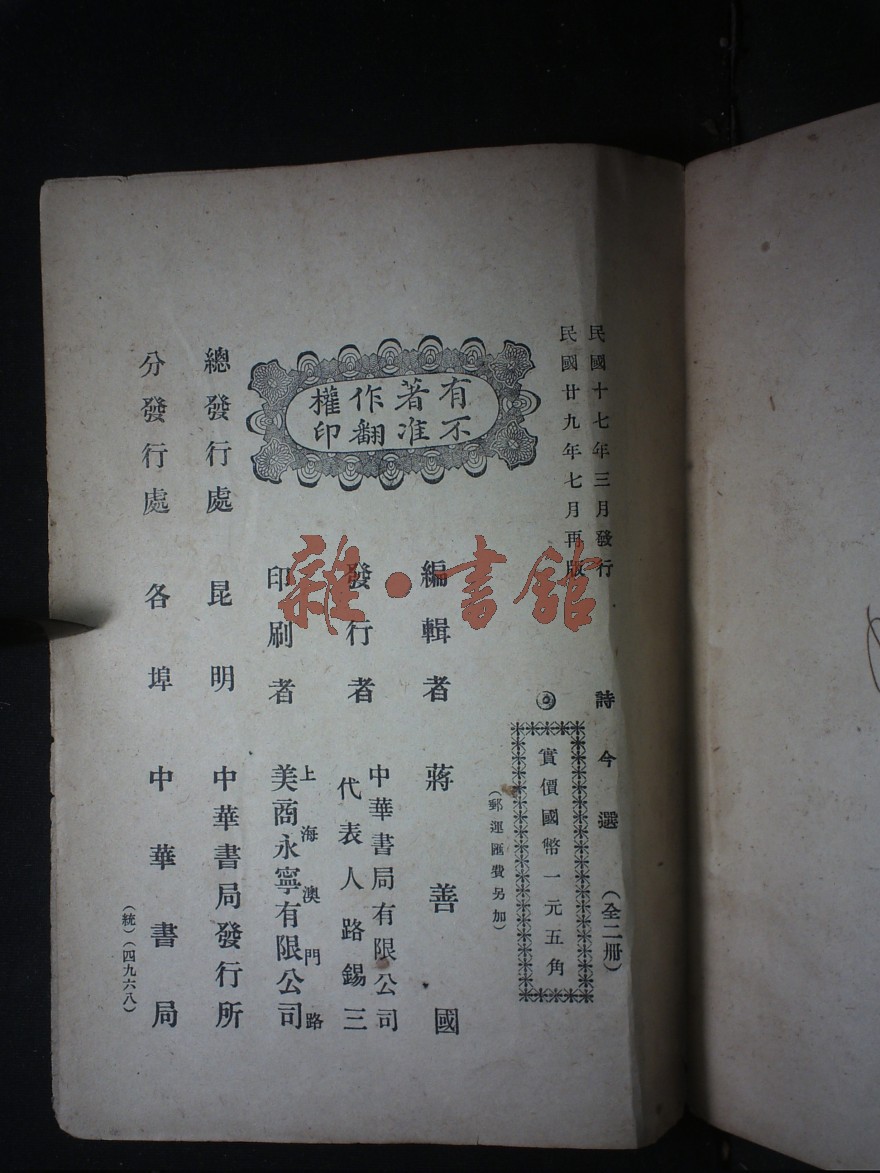 民國十七年三月發行
民國廿九年七月再版
詩今選（全二冊）
◎實價國幣一元五角
（郵運匯費另加）
有著作權
不准翻印
編輯者 蔣善國
發行者 中華書局有限公司
代表人路錫三
印刷者 上海澳門路
美商永寧有限公司
總發行處 昆明 中華書局發行所
分發行處 各埠 中華書局
（統）（四九六八）
雜·書館